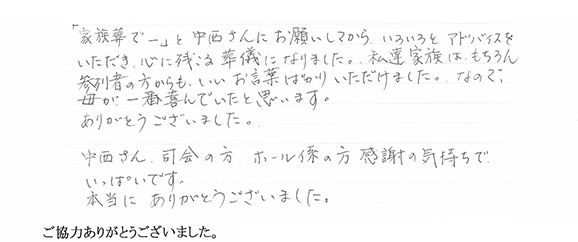 「家族葬で一」と中西さんにお願いしてから、いろいろと アドバイスを
いただき、心に残る葬儀になりました。私達家族は、もちろん
参列者の方からも、いいお言葉ばかりいただけました。なので、
母が、一番喜んでいたと思います。
ありがとうございました。
中西さん、司会の方、ホール係の方 感謝の気持ちで
いっぱいです。
本当に ありがとうございました。
ご協力ありがとうございました。